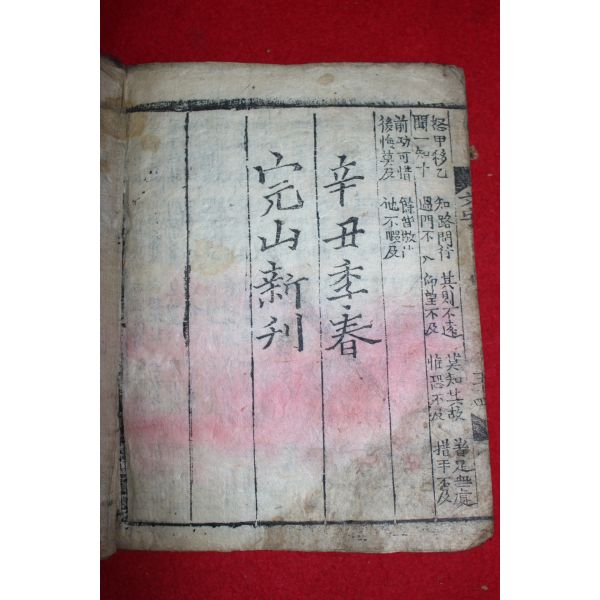 怒甲移乙 知路問行 其則不遠 莫知其故 着足無處
聞一知十 過門不入 仰望不及 惟恐不及 措手不及
前功可惜 餘皆倣此
後悔莫及 他不暇及
辛丑季春
完山新刊